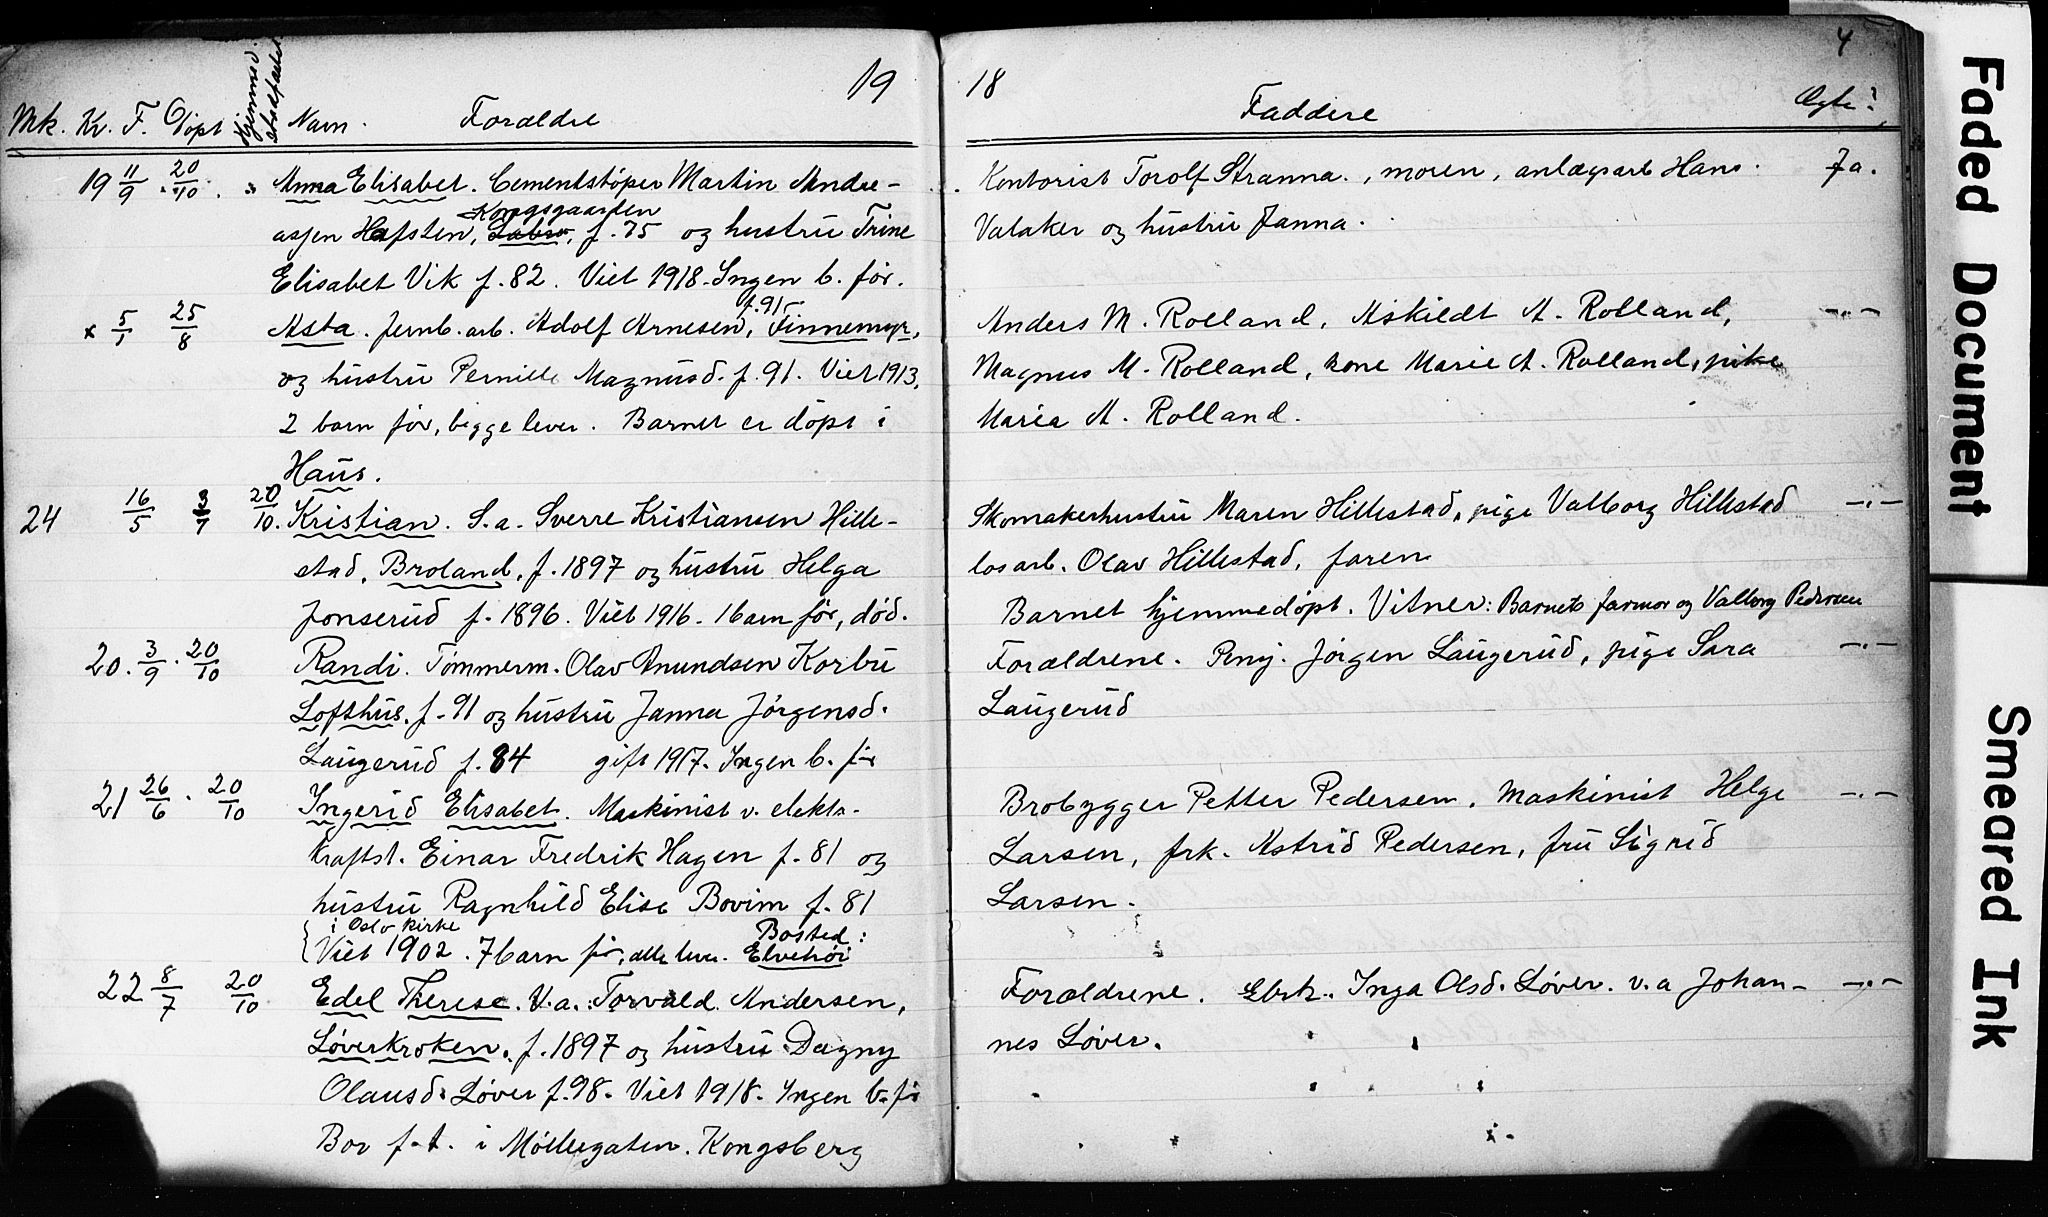 19 18 4
Mk. Kv. F. Døpt Hjemmed. stadfæstet Navn. Forældre Faddere Ægte?
19 11/9 . 20/10 . Anna Elisabet. Cementstøper Martin Andre-
asjen Hafsten, Labro, Kongsgaarden f. 75 og hustru Trine
Elisabet Vik f. 82. Viet 1918. Ingen b. før.
x 5/1 25/8 Asta. Jernb. arb. Adolf Arnesen, f. 91 Finnemyr,
og hustru Pernille Magnusd. f. 91. Viet 1913.
2 barn før, begge lever. Barnet er døpt i
Haus.
24 16/5 3/7 20/10. Kristian. S.a. Sverre Kristiansen Hille-
stad, Broland, f. 1897 og hustru Helga
Jonserud f. 1896. Viet 1916. 1 barn før, død.
20. 3/9 . 20/10 Randi. Tømmerm. Olav Anundsen Korbu
Lofthus. f. 91 og hustru Janna Jørgensd.
Laugerud f. 84 gift 1917. Ingen b. før
21 26/6 . 20/10 Ingerid Elisabet. Maskinist v. elektr.
kraftst. Einar Fredrik Hagen f. 81 og
hustru Ragnhild Elise Bovim f. 81
i Oslo kirke Bosted:
Viet 1902. 7 barn før, alle lever. Elvehøi
22 8/7 20/10 Edel Therese. V.a. Torvald Andersen,
Løverkroken. f. 1897 og hustru Dagny
Olausd. Løver f. 98. Viet 1918. Ingen b. før
Bor f.t. i Møllegaten. Kongsberg
Kontorist Torolf Stranna., moren, anlægsarb Hans Ja.
Valaker og hustru Janna.
Anders M. Rolland, Askildt A. Rolland, -"-
Magnus M. Rolland, kone Marie A. Rolland, pike
Maria A. Rolland.
Skomakerhustru Maren Hillestad, pige Valborg Hillestad -"-
løsarb. Olav Hillestad, faren
Barnet hjemmedøpt. Vitner: Barnets farmor og Valborg Pedersen
Forældrene. Pmj. Jørgen Laugerud, pige Sara -"-
Laugerud
Brobygger Petter Pedersen, maskinist Helge -"-
Larsen, frk. Astrid Pedersen, fru Sigrid
Larsen.
Forældrene. Ebrk. Inga Olsd. Løver. v.a Johan- -"-
nes Løver.
Faded Document
Smeared Ink